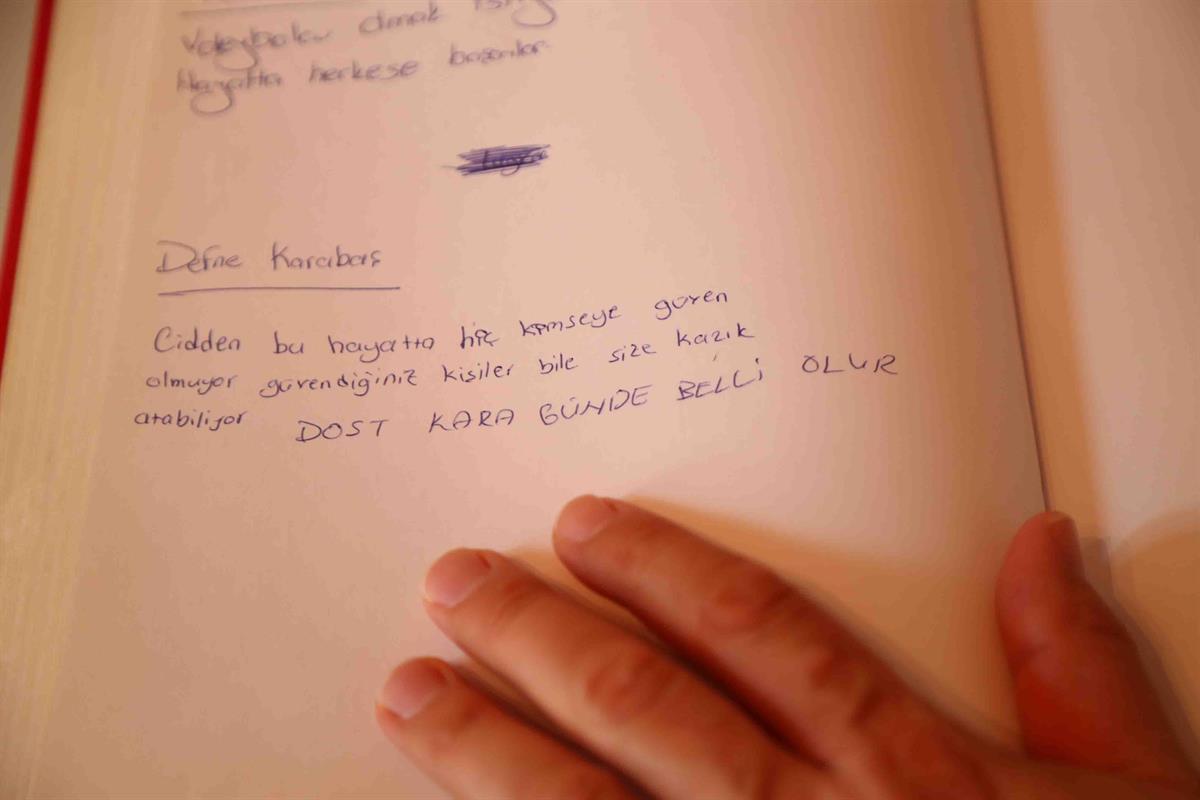 Voleybolcu olmak
Hayatta herkese başarılar
Defne Karabaş
Cidden bu hayatta hiç kimseye güven
olmuyor güvendiğiniz kişiler bile size kazık
atabiliyor DOST KARA GÜNDE BELLİ OLUR